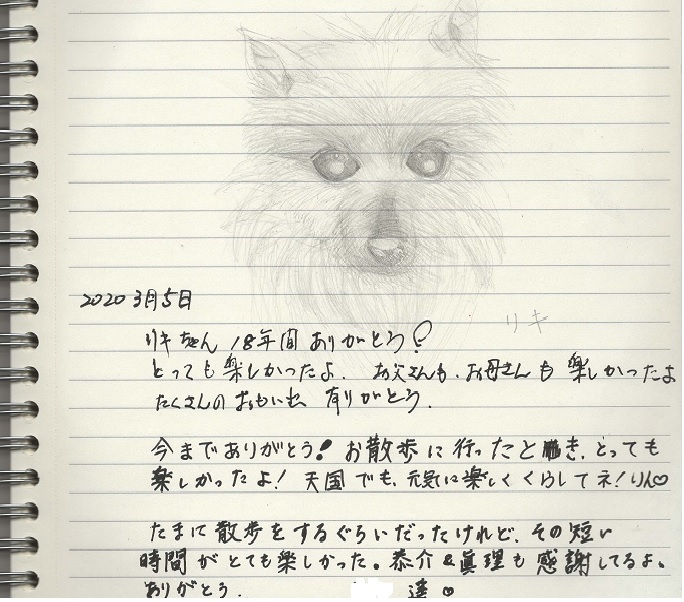 リキ
2020 3月5日
リキちゃん 18年間 ありがとう!
とっても 楽しかったよ. お父さんも、お母さんも 楽しかったよ
たくさんの おもいで 有りがとう.
今までありがとう! お散歩に行ったとき、とっても
楽しかったよ! 天国でも、元気に楽しくくらしてネ! りん♡
たまに散歩をするぐらいだったけれど、その短い
時間がとても楽しかった。恭介&眞理も感謝してるよ。
ありがとう. 遥♡